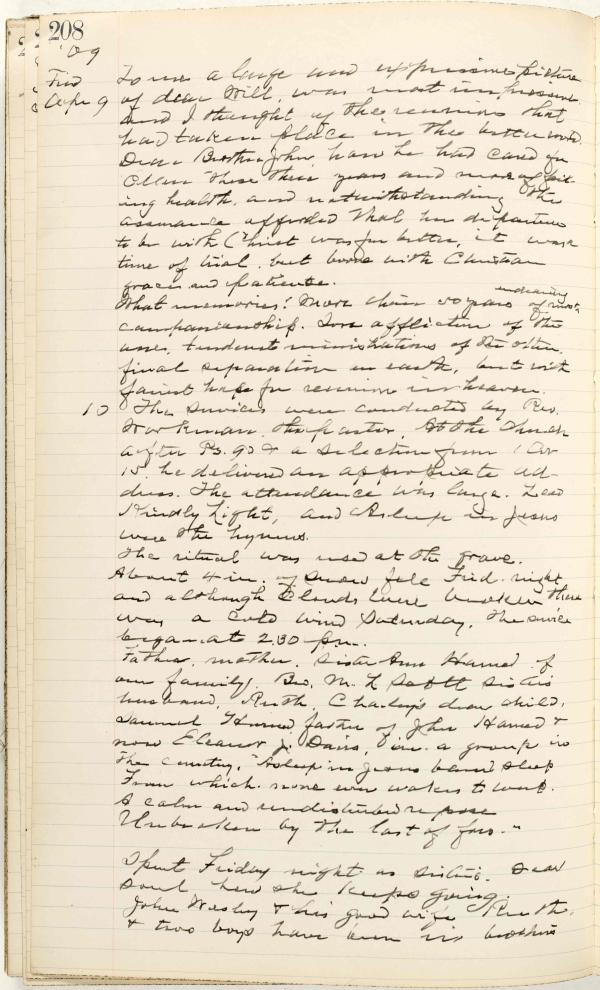 208
'09
Frid To me a large and expressive picture
Apr 9 of dear Will, was most impressive
and I thought of the reunions that
had taken place in the better world.
Dear Brother John, how he had cared for
Ellen these three years and more of fail-
ing health, and notwithstanding the
assurance afforded that her departure
to be with Christ was far better, it was a
time of trial, but borne with Christian
graces and patience.
What memories! More than 50 years of most endearing
companionship. Sore affliction of the
one, tenderest ministrations of the other,
final separation on earth, but with
fairest hope for reunion in heaven.
10 The services were conducted by Rev.
Workman, the pastor, At the Church
after Ps. 90 & a selection from 1 Cor
15, he delivered an appropriate ad-
dress. The attendance was large. Lead
Kindly Light, and Asleep in Jesus
were the hymns.
The ritual was used at the grave.
About 4 in. of snow fell Frid. night
and although clouds were broken there
was a cold wind Saturday. The service
began at 2.30 p.m.
Father, mother, sister Ann Hamed of
our family, Bro. M. L Scott sister's
husband, Ruth, Charley's dear child,
Samuel Hamed father of John Hamed &
now Eleanor J. Davis, a group in
the cemetery, "Asleep in Jesus blessed sleep
From which none ever wakes to weep.
A calm and undisturbed repose
Unbroken by the last of foes."
Spent Friday night as sister's. Dear
soul, how she keeps going.
John Wesley & his good wife Ruth,
& two boys have been in brother's